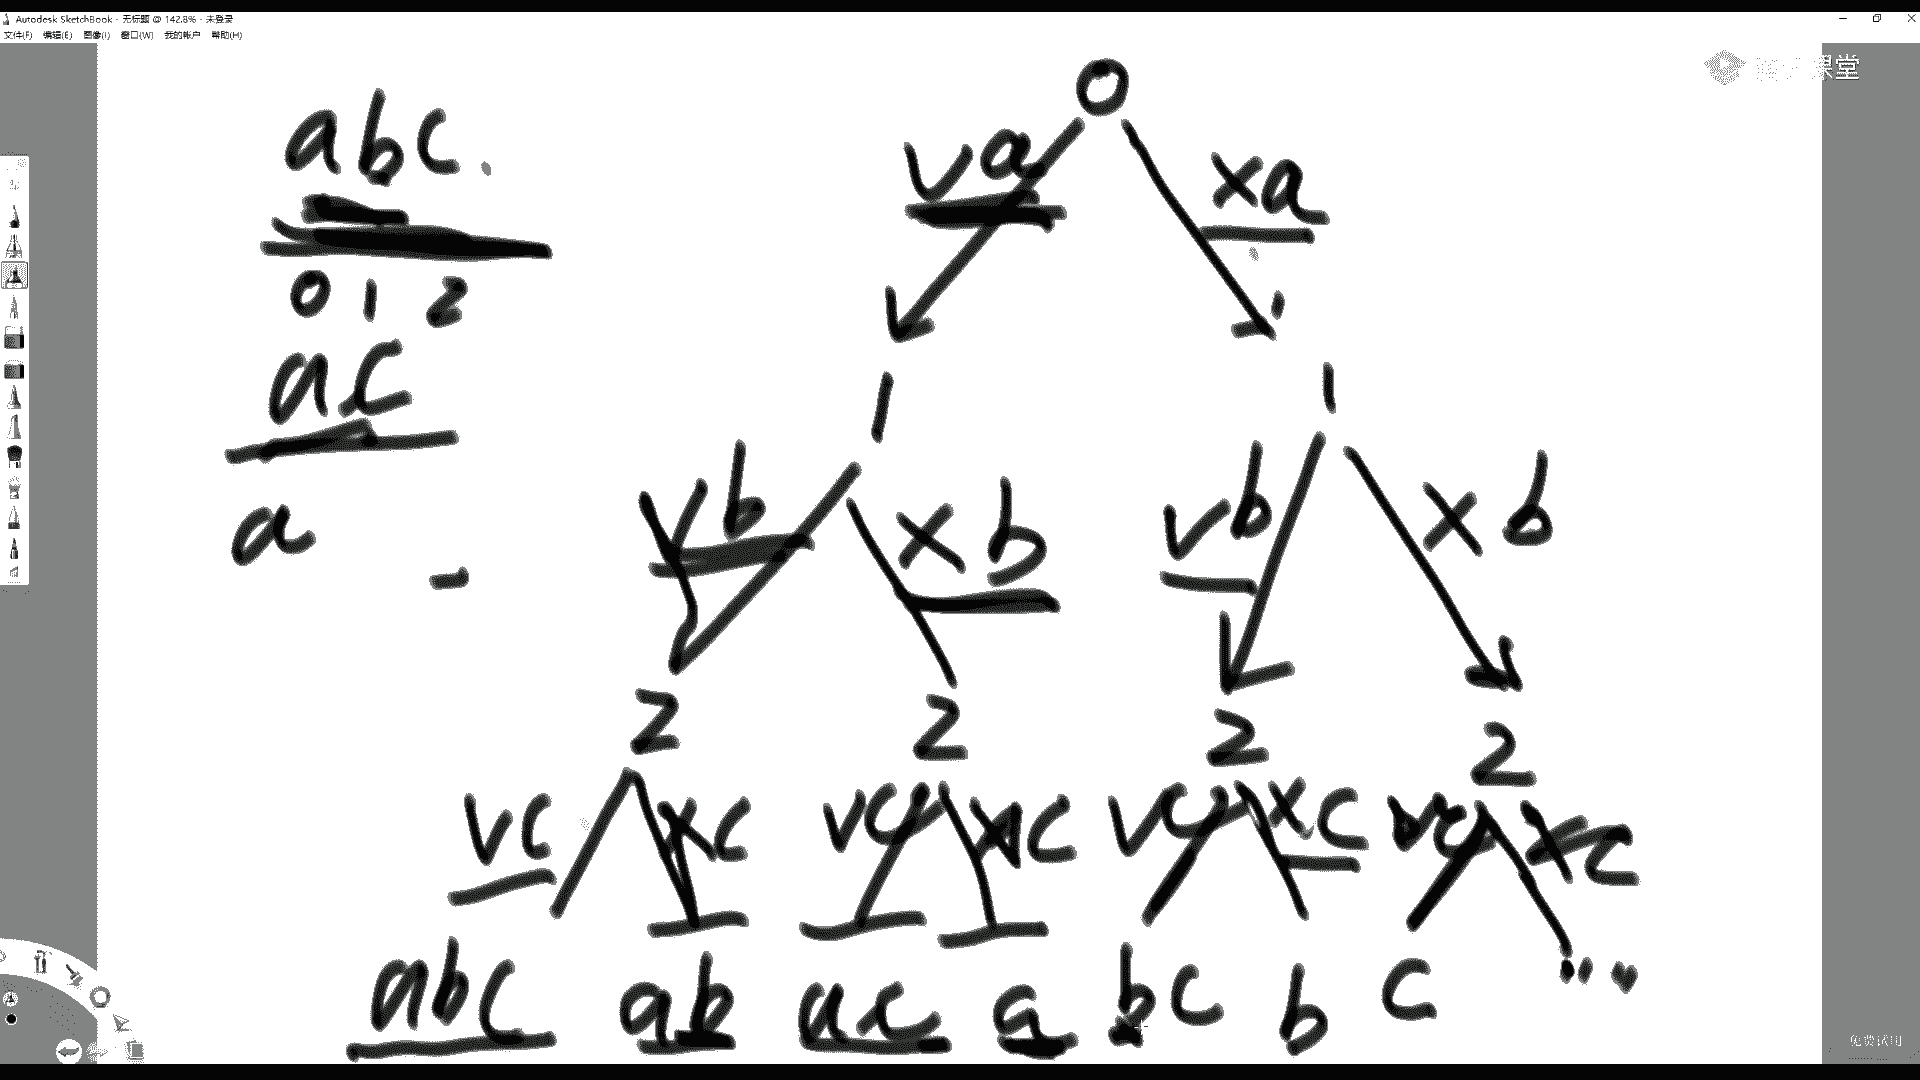 Autodesk SketchBook - 无标题 @ 142.8% - 未登录
文件(F) 编辑(E) 图像(I) 窗口(W) 我的帐户 帮助(H)
课堂
0
abc
va xa
0 1 2
1 1
ac
vb xb vb xb
a
2 2 2 2
vc xc vc xc vc xc vc xc
abc ab ac a bc b c "
免费试用